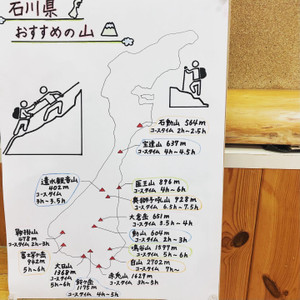 石川県
おすすめの山
石動山 564m
コースタイム 2h~2.5h
宝達山 637m
コースタイム 4h~4.5h
医王山 896m
コースタイム 4h~6h
奥獅子吼山 928m
コースタイム 6.5h~7.5h
大倉岳 651m
コースタイム 3.5h~4h
動山 604m
コースタイム 2h~3h
鳥谷山 1599m
コースタイム 5h~6h
白山 2702m
コースタイム 7h~
赤兎山 1629m
コースタイム 4h~5h
鈴ヶ岳 1175m
大日山
1368m
5h~6h
富士写ヶ岳
942m
5h~6h
鞍掛山
478m
コースタイム 2h~3h
遣水観音山
402m
コースタイム
3h~3.5h